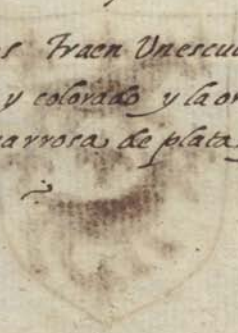 s Traen Un escu
y colorado y la or
arrosa de plata